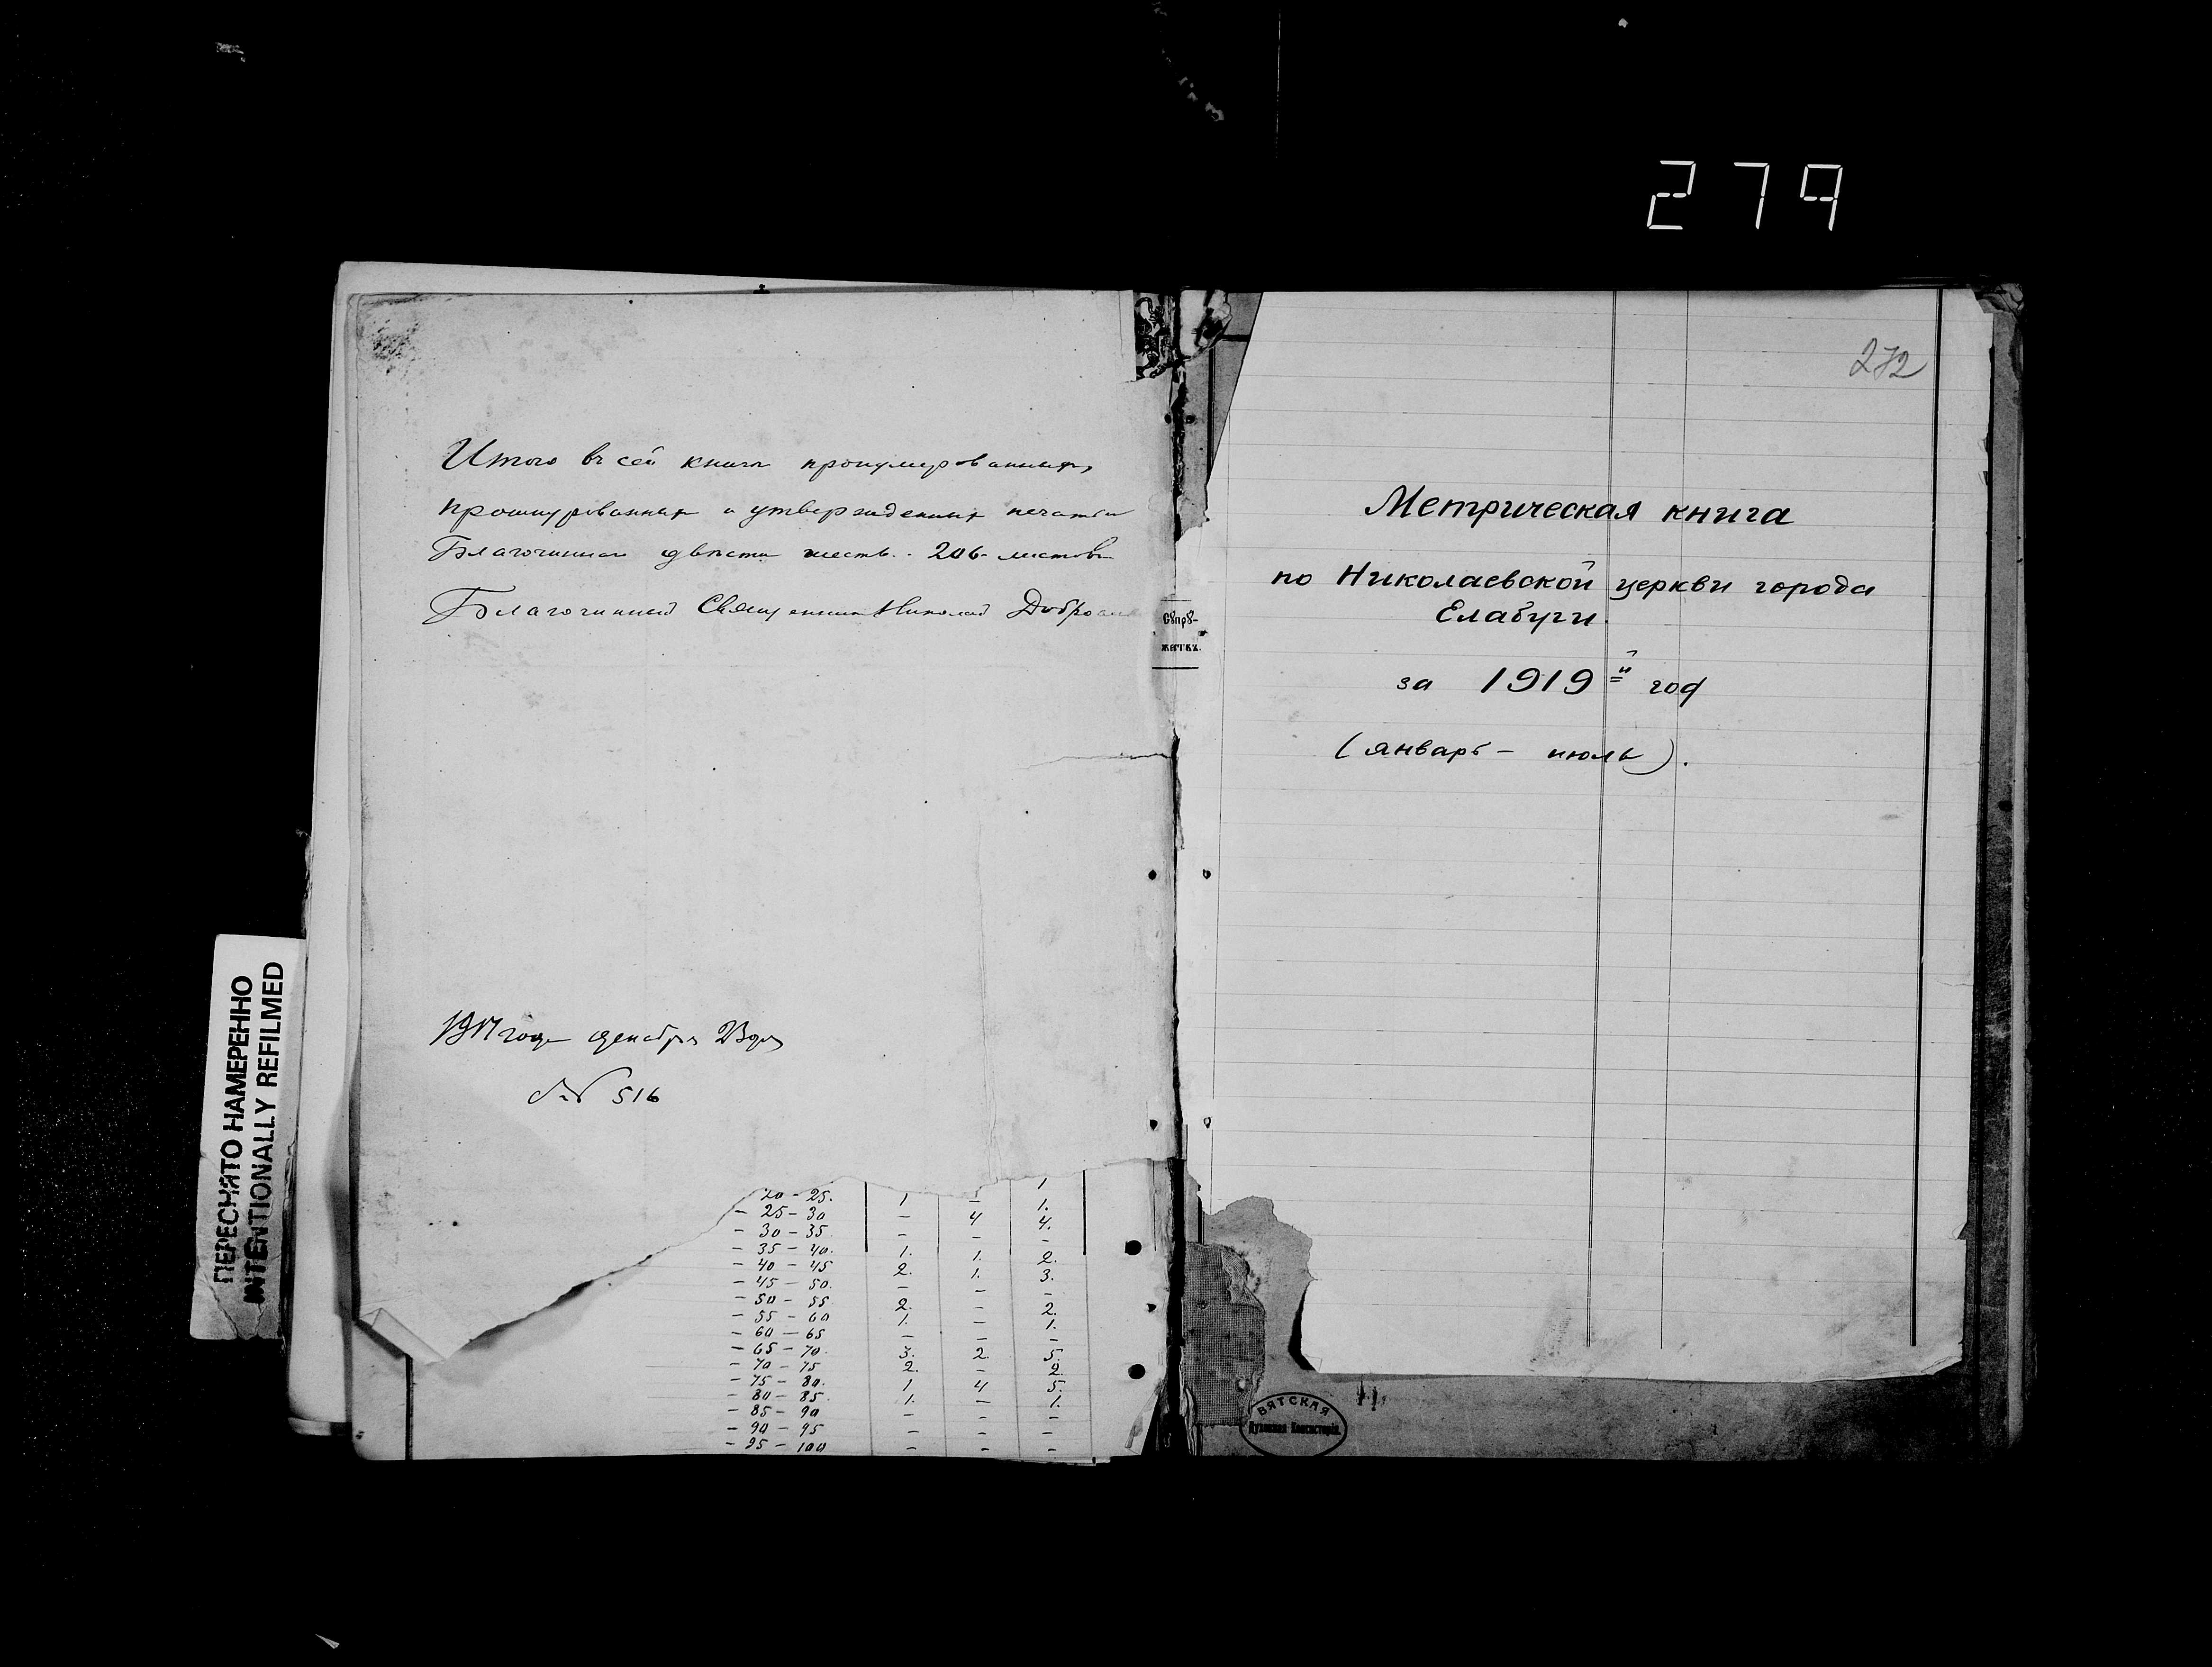 279
Итого въ сей книгѣ пронумерованныхъ,
прошнурованныхъ и утвержденныхъ печатью
Благочиннаго двѣсти шесть - 206 - листовъ
Благочинный Священникъ Николай
1917 года декабря 23 дня
№ 516
20 - 25. 1 - 1
- 25 - 30 - 4 1.
- 30 - 35 - - 4.
- 35 - 40. 1. 1. -
- 40 - 45 2. 1. 2.
- 45 - 50. - - 3.
- 50 - 55 2. - -
- 55 - 60 1. - 2.
- 60 - 65 - - 1.
- 65 - 70. 3. 2. -
- 70 - 75 2. - 5.
- 75 - 80. 1 4 2.
- 80 - 85. 1. - 5.
- 85 - 90 - - 1.
- 90 - 95 - - -
- 95 - 100 - - -
Сꙋпрꙋ-
жествъ.
272
Метрическая книга
по Николаевской церкви города
Елабуги.
за 1919й год
(январь - июль).
ВЯТСКАЯ
Духовная Консисторія.
ПЕРЕСНЯТО НАМЕРЕННО
INTENTIONALLY REFILMED